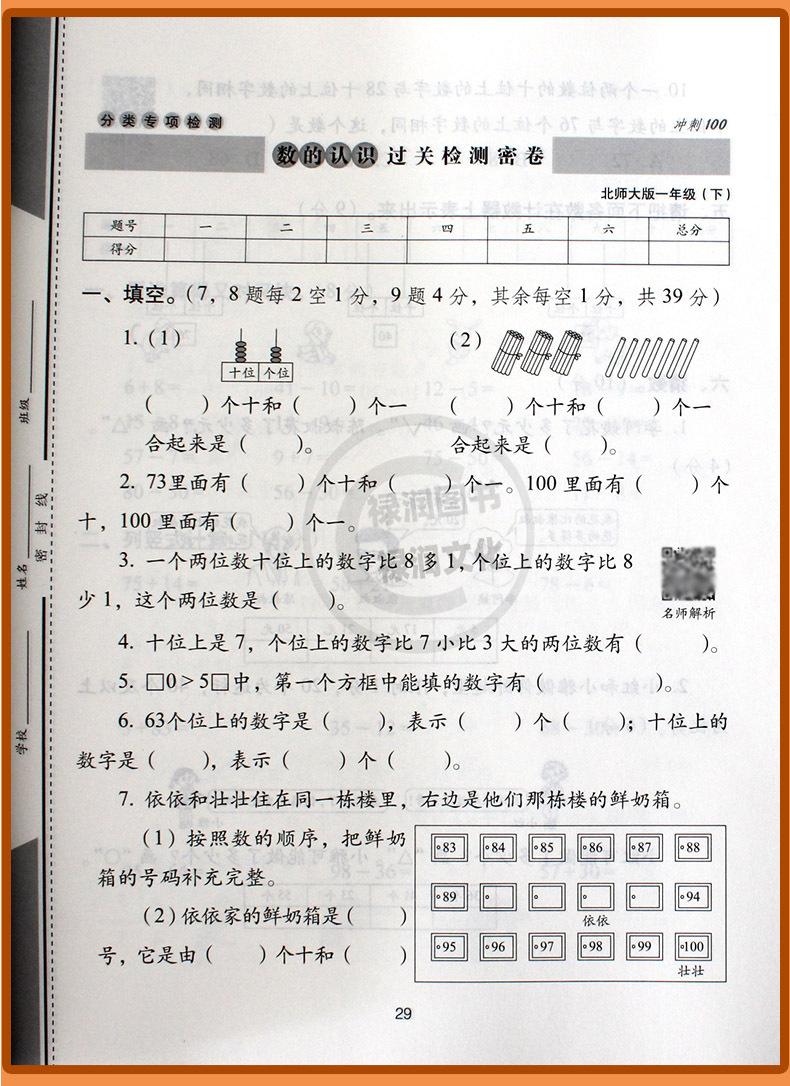 分类专项检测
冲刺100
数的认识过关检测密卷
北师大版一年级（下）
题号 一 二 三 四 五 六 总分
得分
一、填空。（7，8题每2空1分，9题4分，其余每空1分，共39分）
1.（1） （2）
十位 个位
（ ）个十和（ ）个一 （ ）个十和（ ）个一
合起来是（ ）。 合起来是（ ）。
2. 73里面有（ ）个十和（ ）个一。100里面有（ ）个
十，100里面有（ ）个一。
3. 一个两位数十位上的数字比8多1，个位上的数字比8
少1，这个两位数是（ ）。
名师解析
4. 十位上是7，个位上的数字比7小比3大的两位数有（ ）。
5. □0＞5□中，第一个方框中能填的数字有（ ）。
6. 63个位上的数字是（ ），表示（ ）个（ ）；十位上的
数字是（ ），表示（ ）个（ ）。
7. 依依和壮壮住在同一栋楼里，右边是他们那栋楼的鲜奶箱。
（1）按照数的顺序，把鲜奶
箱的号码补充完整。
（2）依依家的鲜奶箱是（ ）
号，它是由（ ）个十和（ ）
83 84 85 86 87 88
89 94
依依
95 96 97 98 99 100
壮壮
29
班级
姓名
学校
密封线
禄润图书
禄润文化